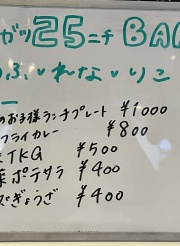 ガッ25ニチ BAR
ふいれないりこ
のお子様ランチプレート ¥1000
フライカレー ¥800
TKG ¥500
ポテサラ ¥400
ぎょうざ ¥400